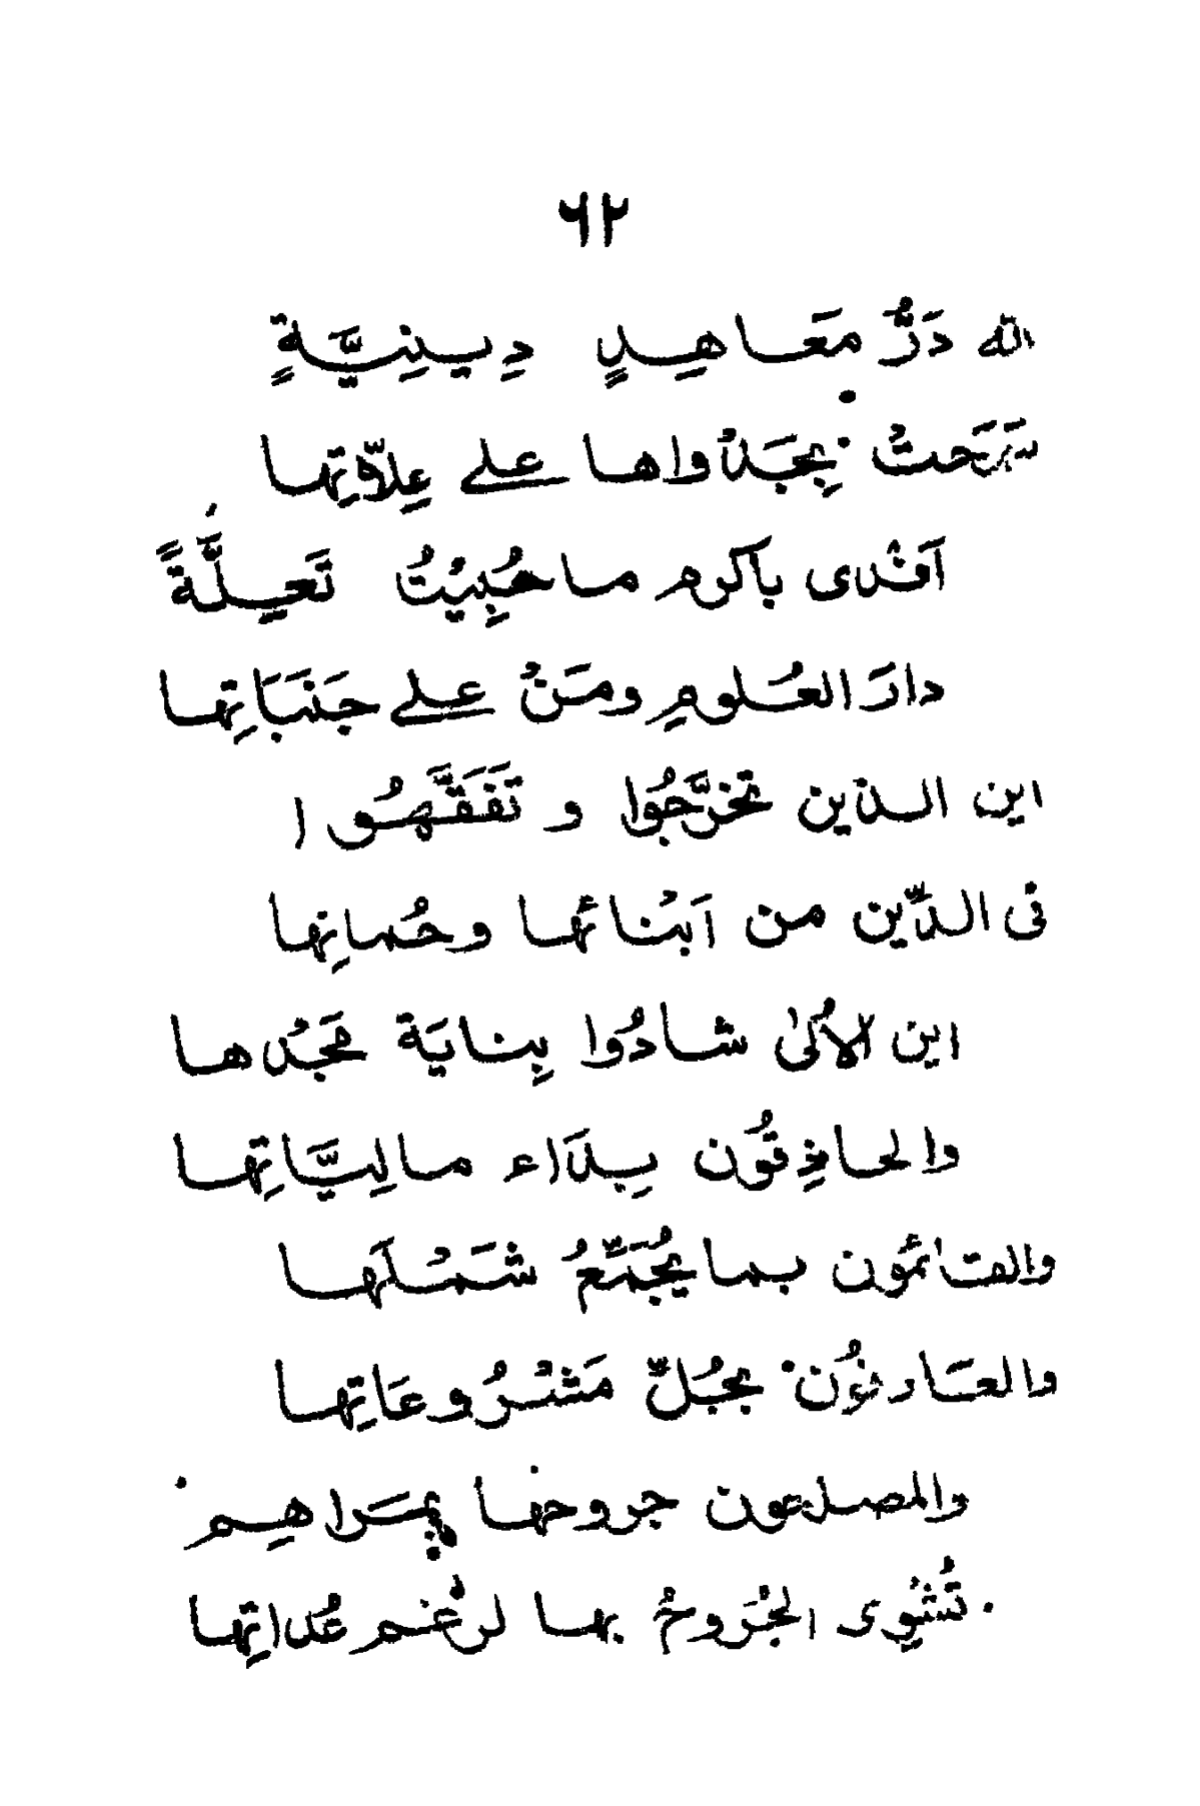 ٦٢
لله دَرُّ مَعَاهِدٍ دِينِيَّةٍ
سَمَحَتْ بِجَدْواها على عِلّاتِها
اَفْدى باكرم ما حُبِيْتُ تَعِلَّةً
دارَ العُلومِ ومَنْ على جَنَبَاتِها
اين الذين تخرَّجُوا و تَفَقَّهُوا
فى الدِّين من اَبْنائها وحُماتِها
اين الاُلىٰ شادُوا بِنايَة مَجْدِها
والحاذِقُون بِدَاء مالِيَّاتِها
والقائمُون بما يُجَمِّعُ شَمْلَها
والعَارفُون بجُلِّ مَشْرُوعَاتِها
والمصلحون جروحَها بِمَراهِم
تُشْوِى الجُرَوحُ بها لرغم عُداتِها